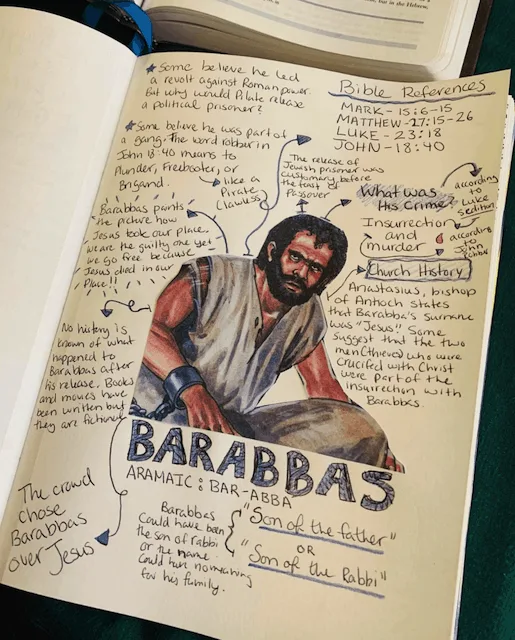 ★ Some believe he led
a revolt against Roman power.
But why would Pilate release
a political prisoner?
Bible References
MARK - 15:6-15
MATTHEW - 27:15-26
LUKE - 23:18
JOHN - 18:40
★ Some believe he was part of
a gang. The word robber in
John 18:40 means to
Plunder, Freebooter, or
Brigand.
like a
Pirate
Lawless
The release of
Jewish prisoner was
customary before
the feast of
Passover
What was
His Crime?
Insurrection
and
murder
according
to Luke
sedition
according
to John
robber
Barabbas paints
the picture how
Jesus took our place.
We are the guilty one yet
we go free because
Jesus died in our
Place!!
Church History
Anastasius, bishop
of Antioch states
that Barabba's surname
was "Jesus". Some
suggest that the two
men (thieves) who were
crucified with Christ
were part of the
insurrection with
Barabbas.
No history is
known of what
happened to
Barabbas after
his release. Books
and movies have
been written but
they are fictional
BARABBAS
ARAMAIC: BAR-ABBA
The crowd
chose
Barabbas
over Jesus
Barabbas
Could have been
the son of rabbi
or the name
Could have no meaning
for his family.
"Son of the father"
OR
"Son of the Rabbi"
but in the Hebrew,